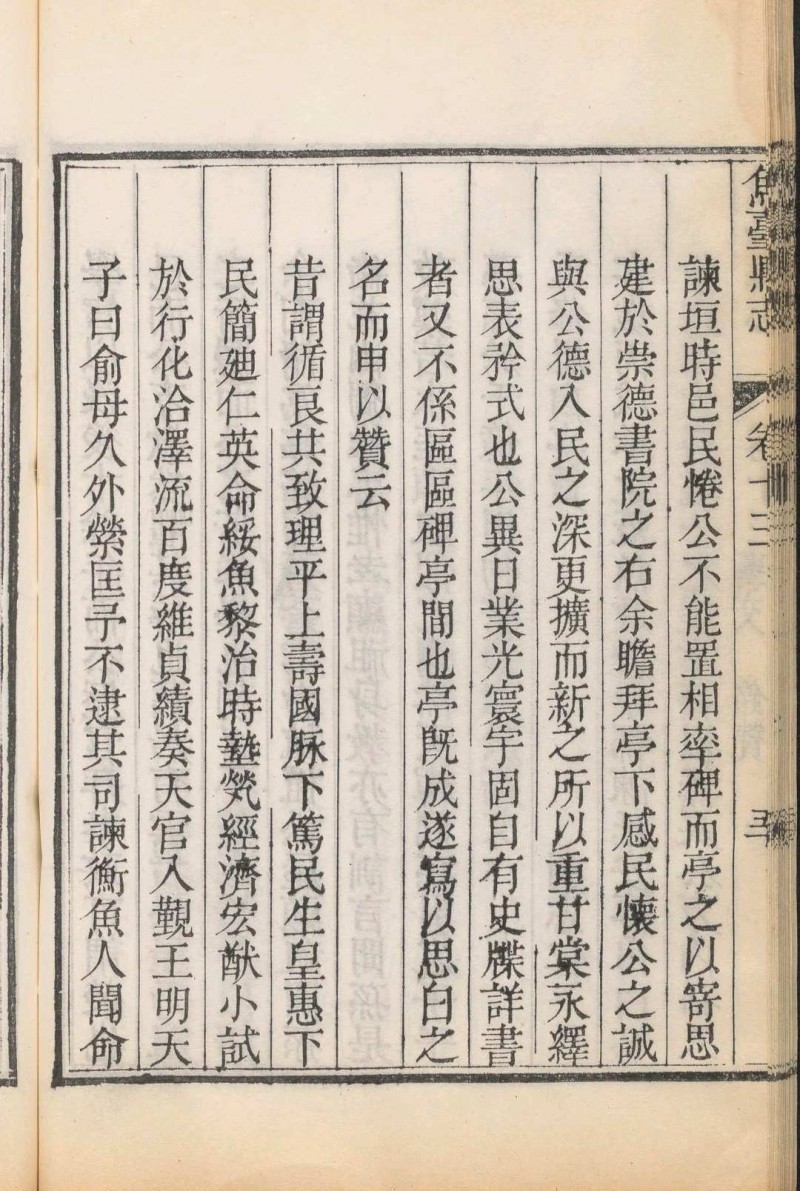 魚臺縣志
卷十三
諫垣時邑民惓公不能置相率碑而亭之以寄思
建於崇德書院之右余瞻拜亭下感民懷公之誠
與公德入民之深更擴而新之所以重甘棠永繹
思表矜式也公異日業光寰宇固自有史牒詳書
者又不係區區碑亭間也亭旣成遂寫以思白之
名而申以贊云
昔謂循良共致理平上壽國脉下篤民生皇惠下
民簡廸仁英命綏魚黎治時蓺煢經濟宏猷小試
於行化洽澤流百度維貞績奏天官入覲王明天
子曰俞毋久外縈匡予不逮其司諫衡魚人聞命